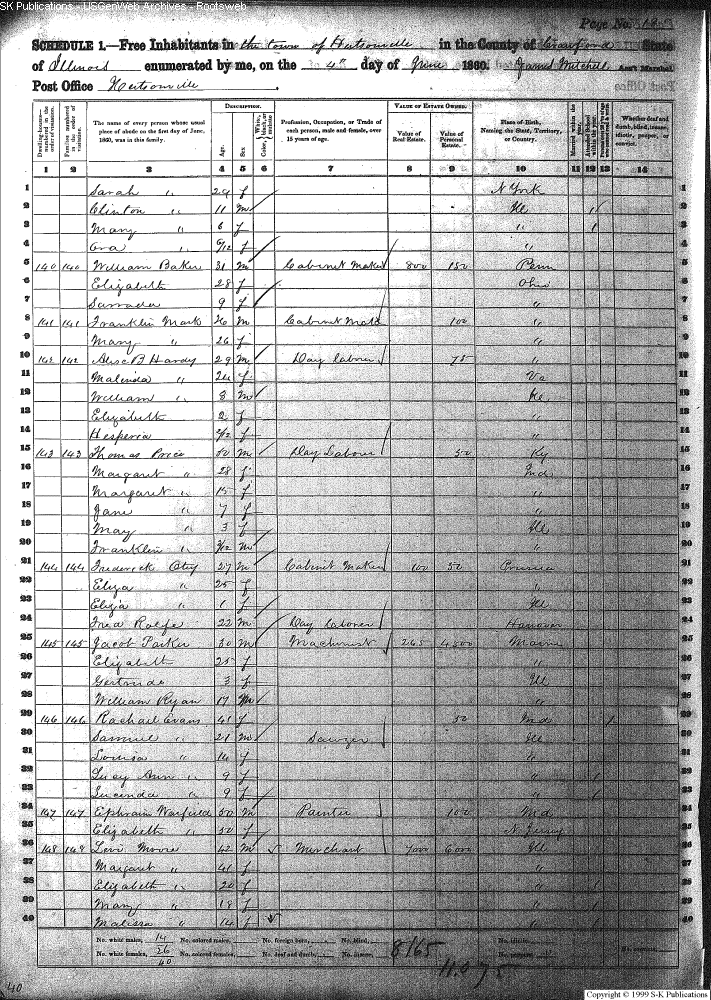 SK Publications - USGenWeb Archives - Rootsweb
Page No.
SCHEDULE 1.—Free Inhabitants in the town of Hutsonville in the County of Crawford State
of Illinois enumerated by me, on the 4th day of June 1860. James Mitchell Ass't Marshal.
Post Office Hutsonville
Dwelling-houses—numbered in the order of visitation.
Families numbered in the order of visitation.
The name of every person whose usual place of abode on the first day of June, 1860, was in this family.
DESCRIPTION.
Age.
Sex.
Color, White, black, or mulatto
Profession, Occupation, or Trade of each person, male and female, over 15 years of age.
VALUE OF ESTATE OWNED.
Value of Real Estate.
Value of Personal Estate.
Place of Birth, Naming the State, Territory, or Country.
Married within the year.
Attended School within the year.
Whether deaf and dumb, blind, insane, idiotic, pauper, or convict.
1 2 3 4 5 6 7 8 9 10 11 12 13 14
1 Sarah " 29 f N York 1
2 Clinton " 11 m Ill / 2
3 Mary " 6 f " / 3
4 " 6/12 f " 4
5 140 140 William Baker 31 m Cabinet Maker 800 150 Penn 5
6 Elizabeth 28 f Ohio 6
7 9 f " 7
8 141 141 Franklin Mark 26 m Cabinet 100 " 8
9 Mary " 26 f " 9
10 142 142 Hardy 29 m Day laborer 75 " 10
11 Malinda " 24 f Va 11
12 William " 3 m Ill 12
13 Elizabeth 2 f " 13
14 Hesperia f " 14
15 143 143 Thomas Price m Day Laborer 50 Ky 15
16 Margaret " 28 f Ind 16
17 Margaret " 15 f " 17
18 Jane " 7 f " 18
19 May " 3 f Ill 19
20 Franklin " m " 20
21 144 144 Frederick 27 m Cabinet Maker 100 50 Prussia 21
22 Eliza " 25 f " 22
23 Eliza " 1 f Ill 23
24 Fred 22 m Day Laborer Hanover 24
25 145 145 Jacob Parker 30 m Machinist 265 4500 Maine 25
26 Elizabeth 25 f " 26
27 Gertrude 3 f Ill 27
28 William Ryan 17 m " 28
29 146 146 Rachael Evans 41 f 50 Ind / 29
30 Samuel " 21 m Sawyer Ill 30
31 Louisa " 14 f " 31
32 Lucy Ann " 9 f " / 32
33 Lucinda " 9 f " / 33
34 147 147 Ephraim Warfield 50 m Painter 100 Md 34
35 Elizabeth " 50 f N Jersey 35
36 148 149 Levi Moore 42 m Merchant 7000 6000 Ill 36
37 Margaret " 41 f " 37
38 Elizabeth " 20 f " / 38
39 Mary " 18 f " / 39
40 Malissa " 14 f " / 40
No. white males, 14 No. colored males, No. foreign born, No. blind,
No. white females, 26 No. colored females, No. deaf and dumb, No. insane,
40
8165
11.075
No. idiotic,
No. paupers,
No. convicts,
40
Copyright © 1999 S-K Publications